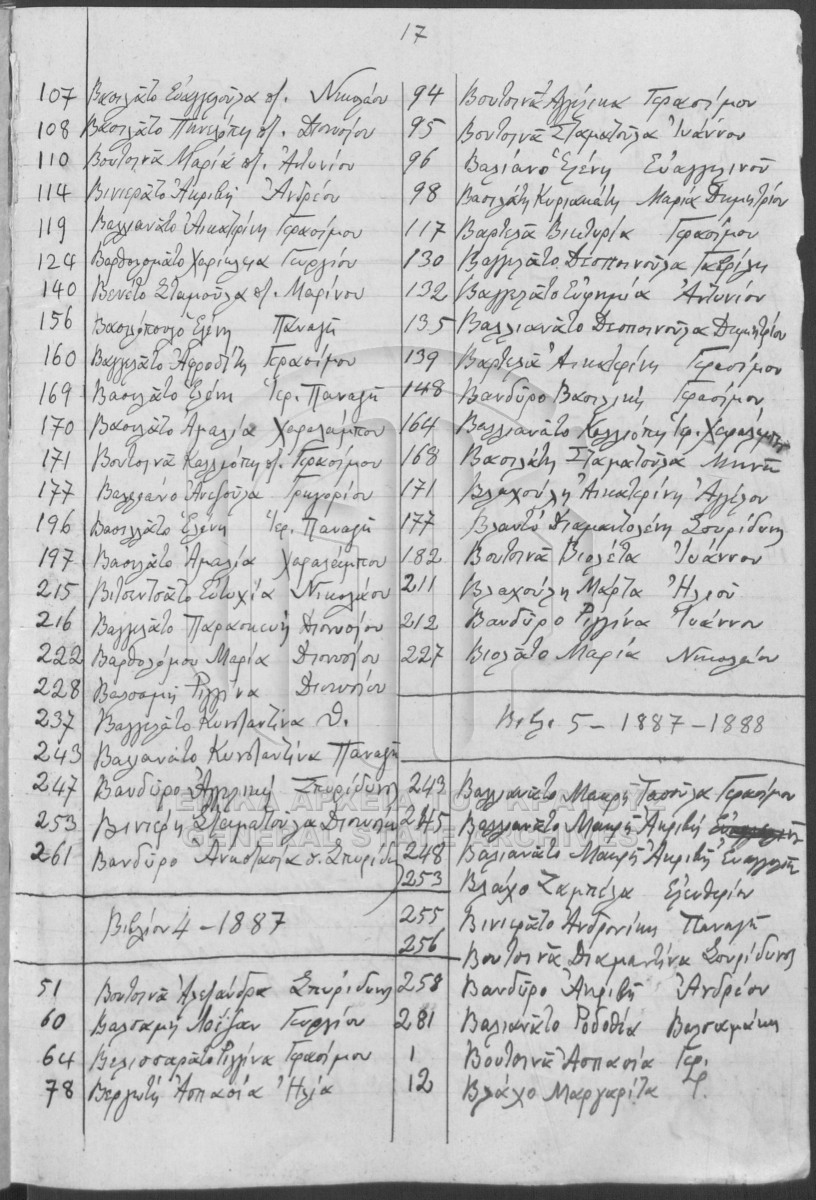 17
107 Βασιλᾶτο Εὐαγγελούλα χή. Νικολάου
108 Βασιλᾶτο Πηνελόπη χή. Διονυσίου
110 Βουτσινᾶ Μαρία χή. Ἀντωνίου
114 Βινιεράτο Ἀκριβὴ Ἀνδρέου
119 Βαλλιανάτο Αἰκατερίνη Γερασίμου
124 Βαρθολομάτο Χαρίκλεια Γεωργίου
140 Βενέτο Σταμούλα χή. Μαρίνου
156 Βασιλόπουλο Ἑλένη Παναγῆ
160 Βαγγελᾶτο Ἀφροδίτη Γερασίμου
169 Βασιλᾶτο Ἑλένη Ἱερ. Παναγῆ
170 Βασιλᾶτο Ἀμαλία Χαραλάμπου
171 Βουτσινᾶ Καλλιόπη χή. Γερασίμου
177 Βαλλιάνο Ἀνεζούλα Γρηγορίου
196 Βασιλᾶτο Ἑλένη Ἱερ. Παναγῆ
197 Βασιλᾶτο Ἀμαλία Χαραλάμπου
215 Βιτσεντσᾶτο Εὐτυχία Νικολάου
216 Βαγγελᾶτο Παρασκευὴ Διονυσίου
222 Βαρθολόμου Μαρία Διονυσίου
228 Βαλσαμῆ Ρεγγίνα Διονυσίου
237 Βαγγελᾶτο Κωνσταντίνα Θ.
243 Βαλιανάτο Κωνσταντίνα Παναγῆ
247 Βανδῶρο Ἀγγελικὴ Σπυρίδωνος
253 Βινιέρη Σταματούλα Διονυσίου
261 Βανδῶρο Ἀναστασία θ. Σπυρίδω
Βιβλίον 4 - 1887
51 Βουτσινᾶ Ἀλεξάνδρα Σπυρίδωνος
60 Βαλσαμῆ Λοΐζα Γεωργίου
64 Βελισσαρᾶτο Ρεγγίνα Γερασίμου
78 Βεργωτῆ Ἀσπασία Ἠλία
94 Βουτσινᾶ Ἀγγέλικα Γερασίμου
95 Βουτσινᾶ Σταματούλα Ἰωάννου
96 Βαλιάνο Ἑλένη Εὐαγγελινοῦ
98 Βασιλάτη Κυριακάτη Μαρία Δημητρίου
117 Βαρτελᾶ Βικτωρία Γερασίμου
130 Βαγγελᾶτο Δεσποινούλα Γαβρίλη
132 Βαγγελᾶτο Εὐφημία Ἀντωνίου
135 Βαλλιανάτο Δεσποινούλα Δημητρίου
139 Βαρτελᾶ Αἰκατερίνη Γερασίμου
148 Βανδῶρο Βασιλικὴ Γερασίμου
164 Βαλλιανάτο Καλλιόπη Ἱερ. Χαραλάμπου
168 Βασιλάτη Σταματούλα Μηνᾶ
171 Βλαχούλη Αἰκατερίνη Ἀγγέλου
177 Βλαντῆ Διαμαντολένη Σπυρίδωνος
182 Βουτσινᾶ Βιολέτα Ἰωάννου
211 Βλαχούλη Μάρτα Ἠλιοῦ
212 Βανδῶρο Ρεγγίνα Ἰωάννου
227 Βιολᾶτο Μαρία Νικολάου
Βιβλ. 5 - 1887 - 1888
243 Βαλλιανᾶτο Μακρῆ Τασούλα Γερασίμου
245 Βαλλιανᾶτο Μακρῆ Ἀκριβὴ
248 Βαλιανᾶτο Μακρῆ Ἀκριβὴ Εὐαγγελῆ
253 Βλάχο Ζαμπέλα Ἐλευθερίου
255 Βινιεράτο Ἀνδρονίκη Παναγῆ
256 Βουτσινᾶ Διαμαντίνα Σπυρίδωνος
258 Βανδῶρο Ἀκριβὴ Ἀνδρέου
281 Βαλιανᾶτο Ροδοθέα Βαλσαμάκη
1 Βουτσινᾶ Ἀσπασία Γερ.
12 Βλάχο Μαργαρίτα
ΓΕΝΙΚΑ ΑΡΧΕΙΑ ΤΟΥ ΚΡΑΤΟΥΣ
GENERAL STATE ARCHIVES